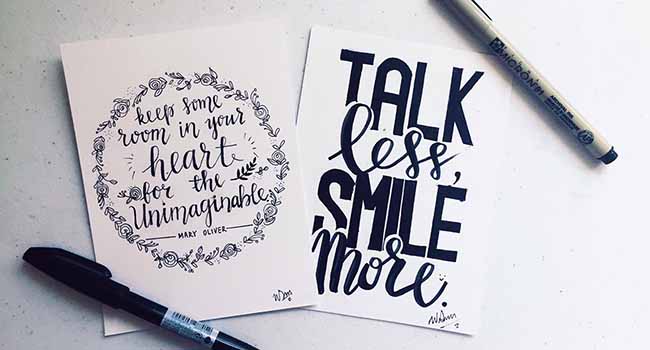 keep some
room in your
heart
for the
Unimaginable
MARY OLIVER
TALK
less,
SMILE
more.